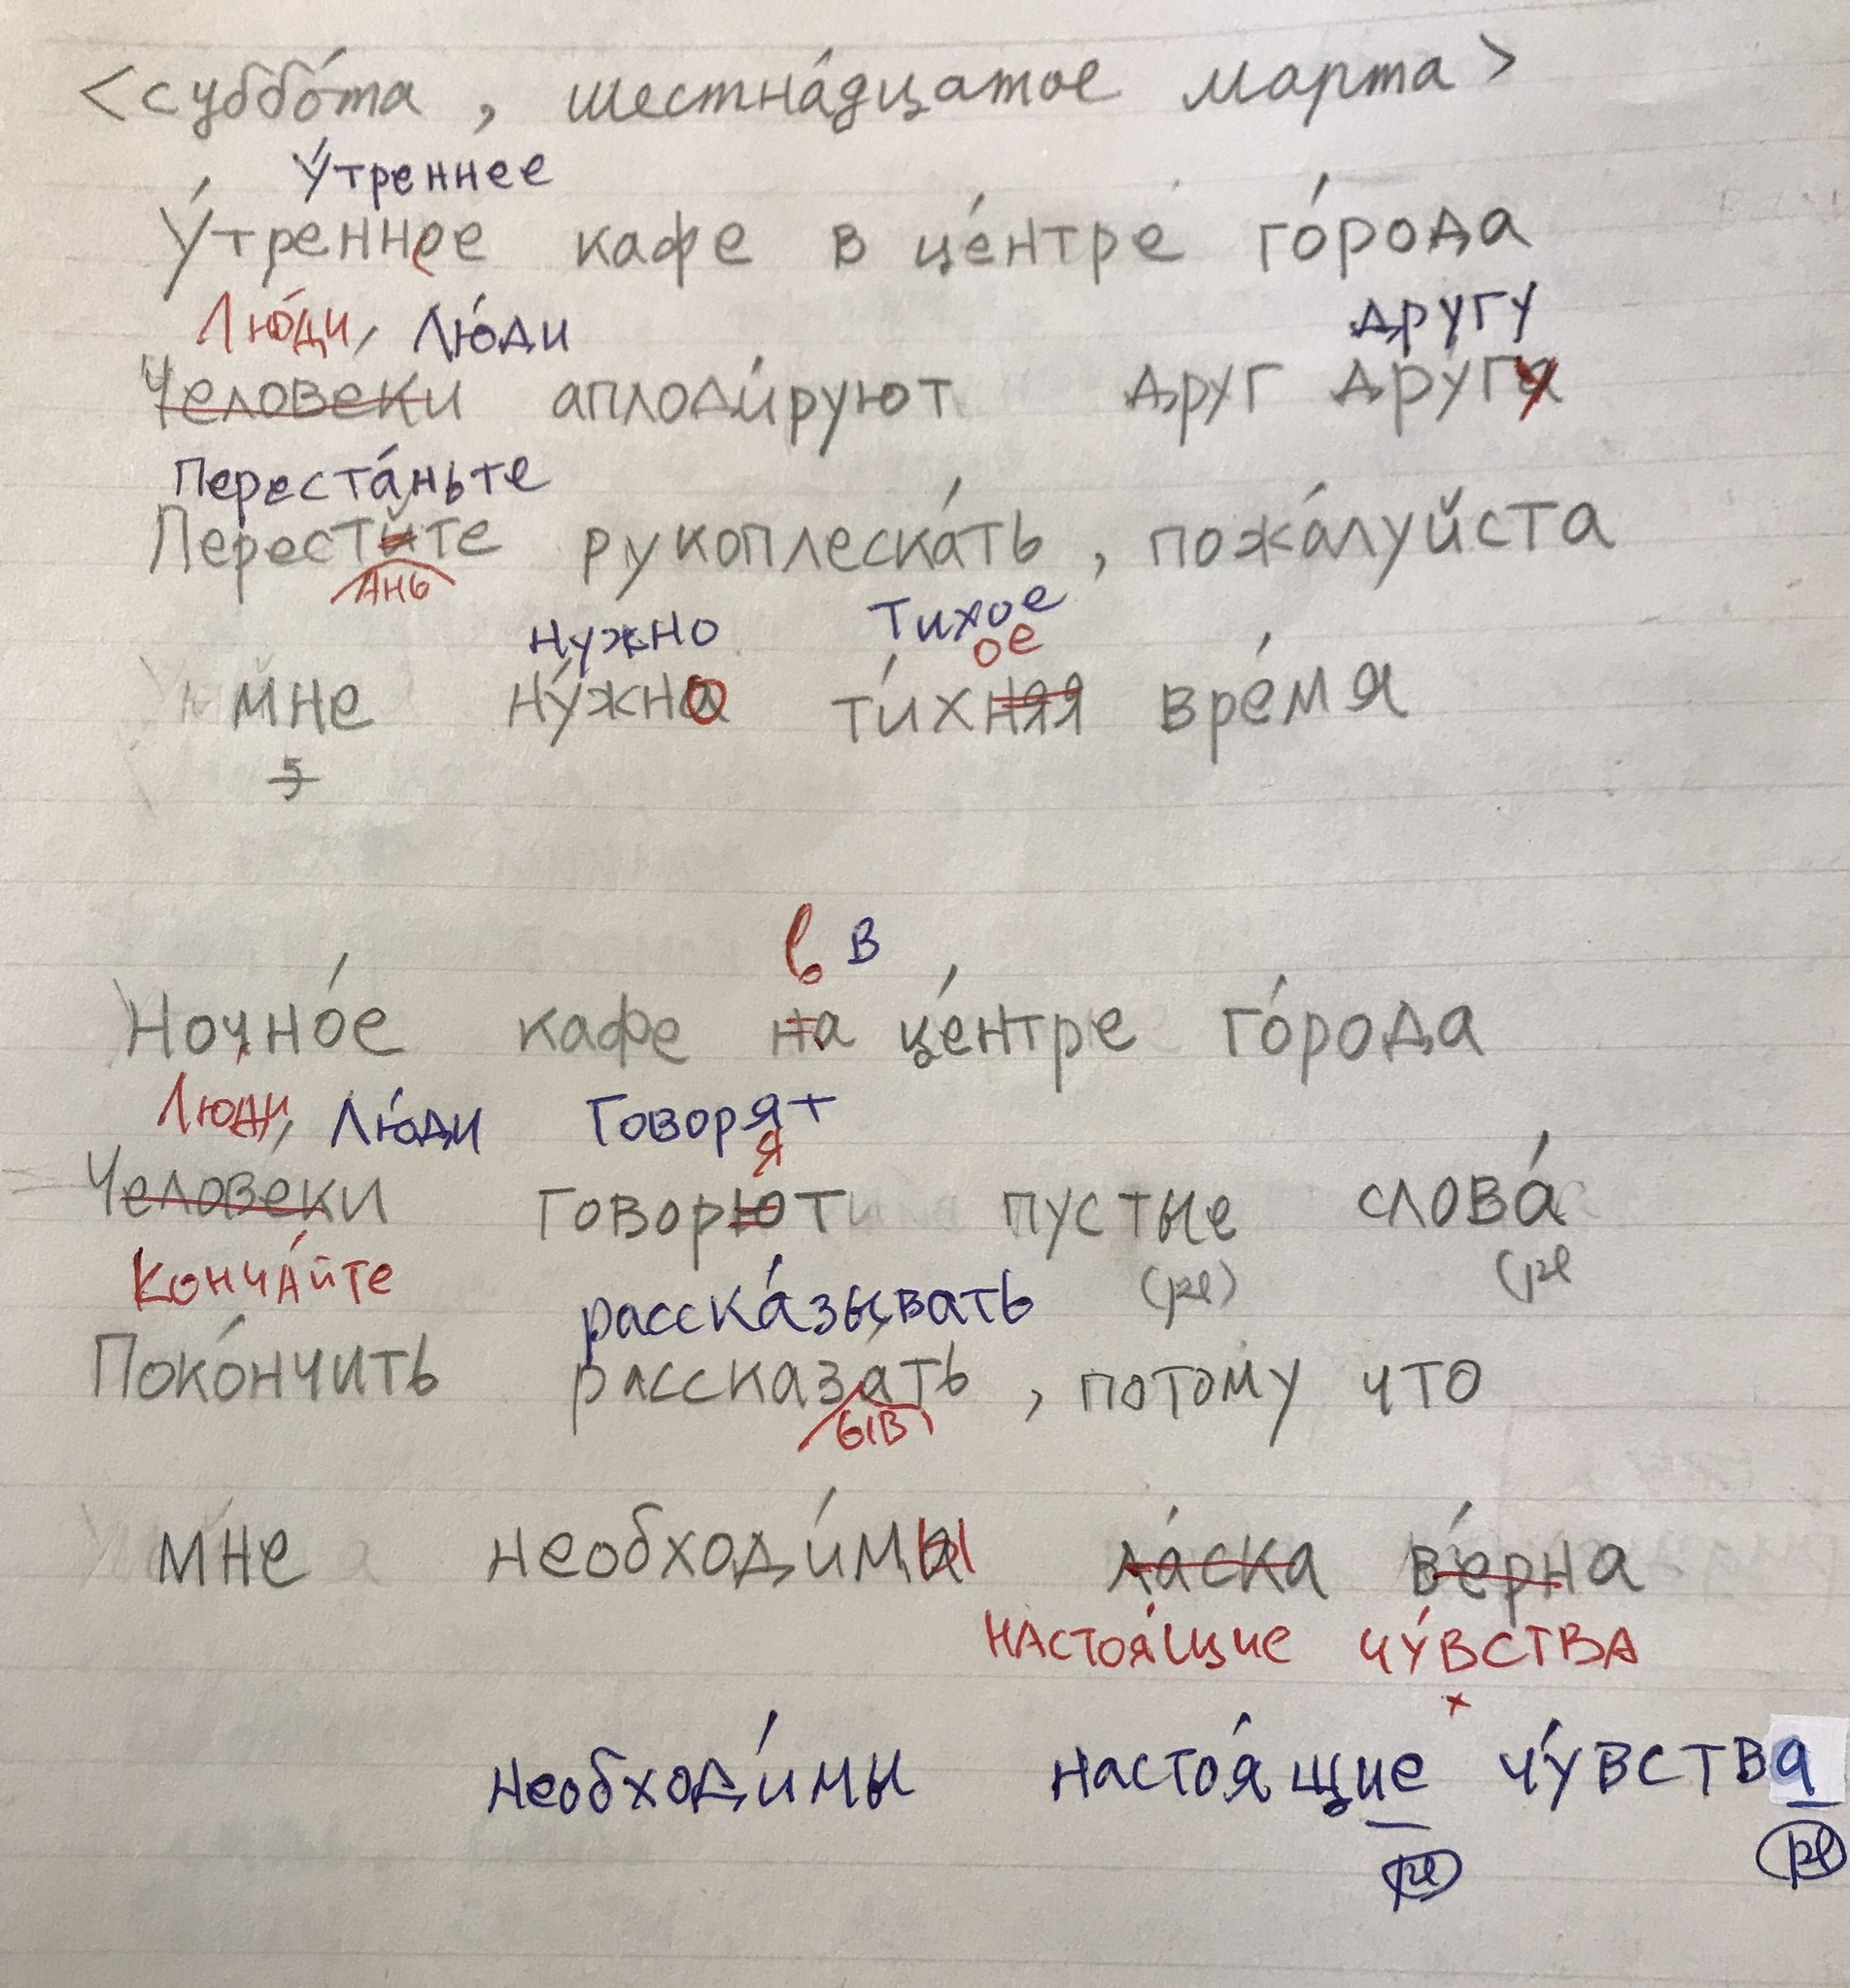 <суббо́та, шестна́дцатое марта>
У́треннее
У́треннее кафе в це́нтре го́рода
Лю́ди, Лю́ди другу
Человеки аплоди́руют друг друга
Переста́ньте
Перестите рукоплеска́ть, пожа́луйста
ань
нужно Тихое
ое
мне ну́жно ти́хняя вре́мя
5
в в
Ночно́е кафе на це́нтре го́рода
Люди, Лю́ди Говорят
я
Человеки говорют пустые слова́
Конча́йте (pl) (pl
расска́зывать
Поко́нчить рассказа́ть, потому что
ыв
мне необходи́мы ла́ска ве́рна
настоя́щие чу́вства
необходи́мы настоя́щие чу́вства
pl pl